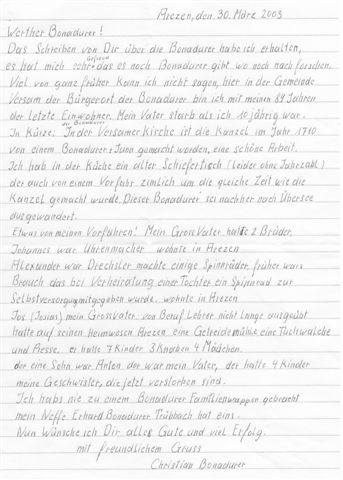 Arezen, den 30. März 2003
Werther Bonadurer!
Das Schreiben von Dir über die Bonadurer habe ich erhalten,
es hat mich sehr gefreud das es noch Bonadurer gibt wo noch nach forschen.
Viel von ganz früher kann ich nicht sagen, hier in der Gemeinde
Versam der Bürgerort der Bonadurer bin ich mit meinen 89 Jahren
der letzte Einwohner. Mein Vater starb als ich 10 jährig war.
In Kürze. die Bonadurer In der Versamer Kirche ist die Kanzel im Jahr 1710
von einem Bonadurer + Juon gemacht worden, eine schöne Arbeit.
Ich hab in der Küche ein alter Schiefertisch (leider ohne Jahrzahl)
der auch von einem Vorfahr zimlich um die gleiche Zeit wie die
Kanzel gemacht wurde, Dieser Bonadurer sei nachher nach Übersee
ausgewandert.
Etwas von meinen Vorfahren! Mein GrossVater hatte 2 Brüder,
Johannes war Uhrenmacher wohnte in Arezen
Alexander war Drechsler machte einige Spinnräder, früher wars
Brauch das bei Verheiratung einer Tochter ein Spinnrad zur
Selbstversorgung mitgegeben wurde, wohnte in Arezen
Jos. (Josias) mein Grossvater. von Beruf Lehrer nicht lange ausgeübt
hatte auf seinen Heimwesen Arezen eine Getreidemühle, eine Tuchwalche
und Presse, er hatte 7 Kinder 3 Knaben 4 Mädchen.
der eine Sohn war Anton der war mein Vater, der hatte 4 Kinder
meine Geschwister, die jetzt verstorben sind.
Ich habs nie zu einem Bonadurer Familienwappen gebracht
mein Neffe Erhard Bonadurer Trübbach hat eins.
Nun Wünsche ich Dir alles Gute und viel Erfolg.
mit freundlichem Gruss
Christian Bonadurer